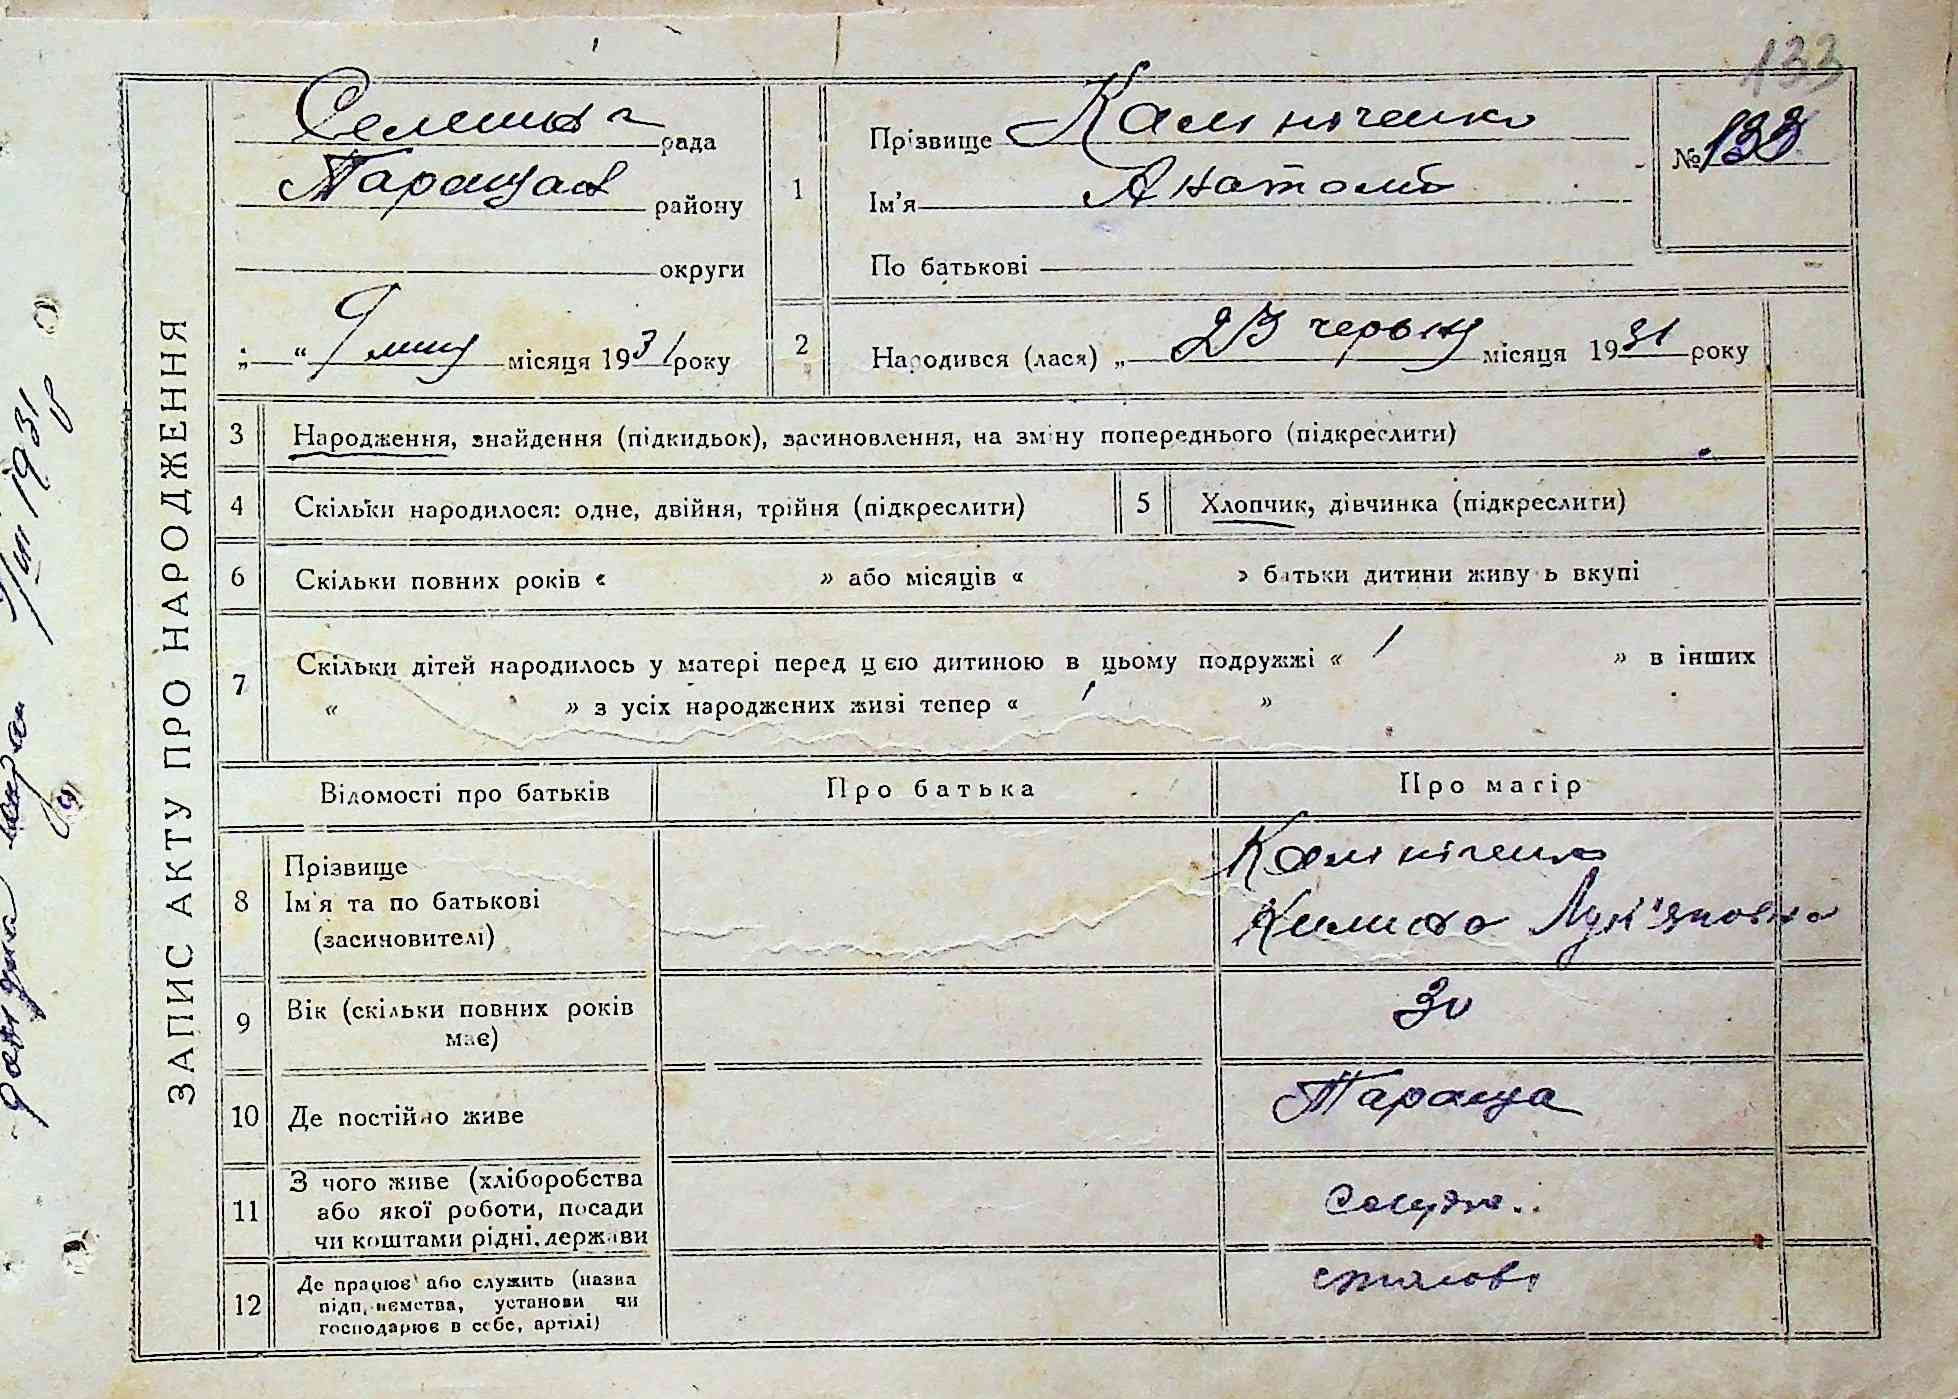 133
ЗАПИС АКТУ ПРО НАРОДЖЕННЯ
Селищна рада
Таращан району
округи
„ “ 9 лип місяця 1931 року
1
Прізвище Калініченко
Ім'я Анатолій
По батькові
№ 133
2
Народився (лася) „ 23 червня місяця 1931 року
3 Народження, знайдення (підкидьок), засиновлення, на зміну попереднього (підкреслити)
4 Скільки народилося: одне, двійня, трійня (підкреслити) 5 Хлопчик, дівчинка (підкреслити)
6 Скільки повних років « » або місяців « » батьки дитини живуть вкупі
7 Скільки дітей народилось у матері перед цією дитиною в цьому подружжі « 1 » в інших
« » з усіх народжених живі тепер « 1 »
Відомості про батьків Про батька Про матір
8 Прізвище
Ім'я та по батькові
(засиновителі)
Калініченко
Лук'яновна
9 Вік (скільки повних років
має)
30
10 Де постійно живе Тараща
11 З чого живе (хліборобства
або якої роботи, посади
чи коштами рідні, держави
12 Де працює або служить (назва
підприємства, установи чи
господарює в себе, артілі)
1931